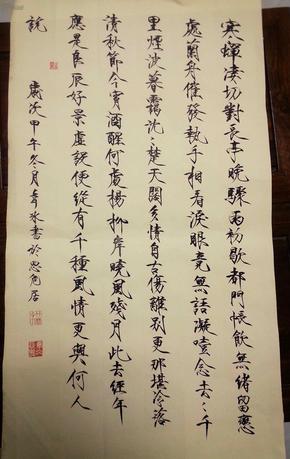 寒蟬淒切對長亭晚驟雨初歇都門帳飲無緒留戀
處蘭舟催發執手相看淚眼竟無語凝噎念去〻千
里煙波暮靄沈〻楚天闊多情自古傷離別更那堪冷落
清秋節今宵酒醒何處楊柳岸曉風殘月此去經年
應是良辰好景虛設便縱有千種風情更與何人
說
歲次甲午冬月冰書於思危居